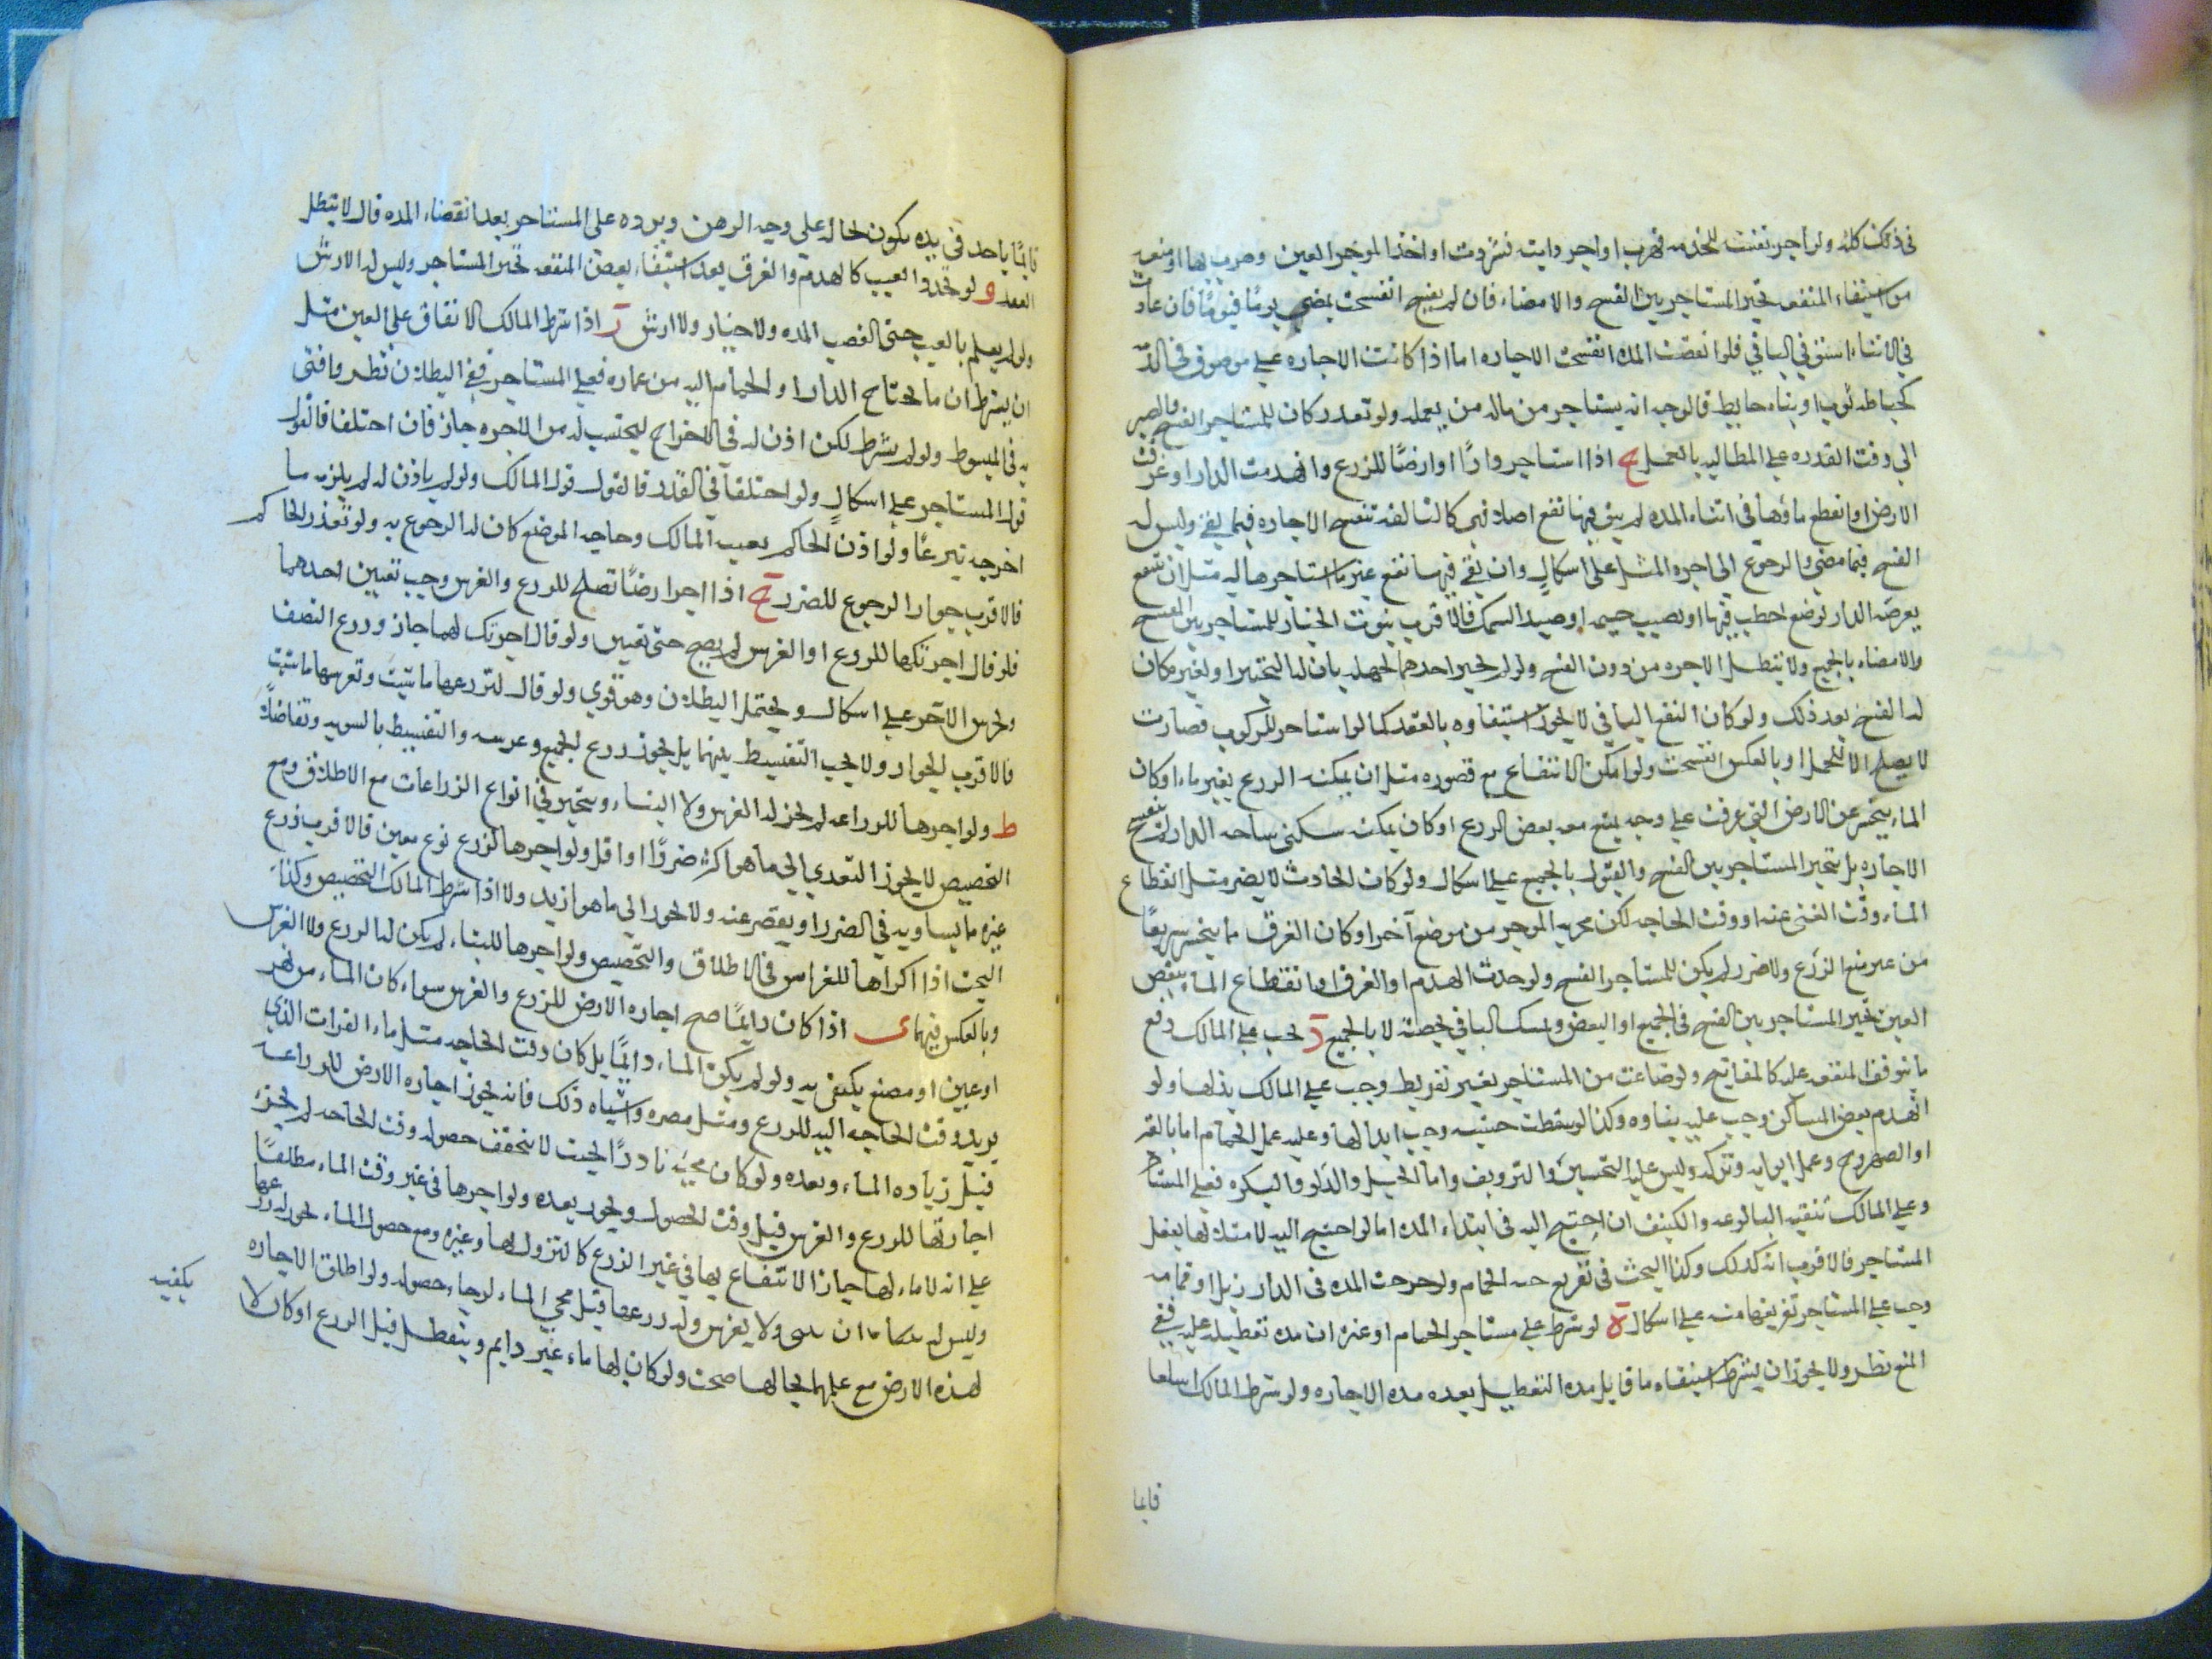 في ذلك كله ولو اجر نفسه للخدمه فهرب او اجر دابته فشردت او اخذ الموجر العين وهرب بها او منعه
من استيفاء المنفعه تخير المستاجر بين الفسح والامضاء فان لم يفسح انفسحت بمضي يوما فيوما فان عادت
في الاثناء استوفى الباقي فلو انقضت المده انفسحت الاجاره اما اذا كانت الاجاره علي موصوف في الذمه
كخياطه ثوب او بناء حايط فالوجه انه يستاجر من ماله من يعمله ولو تعذر كان للمستاجر الفسح والصبر
الي وقت القدره علي المطالبه بالعمل ج اذا استاجر دارا او ارضا للزرع وانهدمت الدار او غرقت
الارض او انقطع ماؤها في اثناء المده لم يبق فيها نفع اصلا فهي كالتالفه تنفسح الاجاره فيما بقي وليس له
الفسح فيما مضي والرجوع الي اجره المثل علي اسكال وان بقي فيها نفع غير ما استاجرها له مثل ان ينتفع
بعرصه الدار لوضع احطب فيها او نصب خيمه او صيد السمك فالاقرب ثبوت الخيار للمستاجر بين الفسح
والامضاء بالجميع ولا تبطل الاجره من دون الفسح ولو لم يخير احدهما لجهله بان له التخير او لغيره كان
له الفسح بعد ذلك ولو كان النفع الباقي لا يجوز استيفاوه بالعقد كما لو استاجر للركوب فصارت
لا يصلح الا للحمل او بالعكس انفسحت ولو امكن الانتفاع مع قصوره مثل ان يمكنه الزرع بغير ماء او كان
الماء ينحسر عن الارض التي غرقت علي وجه يمنع معه بعض الزرع او كان يمكنه سكني ساحه الدار لم تنفسح
الاجاره بل يتخير المستاجر بين الفسح والقبول بالجميع علي اسكال ولو كان الحادث لا يضر مثل انقطاع
الماء وقت الغني عنه او وقت الحاجه لكن يجريه الموجر من موضع آخر او كان الغرق ما ينحسر سريعا
من غير منع الزرع ولا ضرر لم يكن للمستاجر الفسح ولو حدث الهدم او الغرق او انقطاع الماء ببعض
العين تخير المستاجر بين الفسح في الجميع او البعض ويمسك الباقي بحصته لا بالجميع د يجب علي المالك دفع
ما تتوقف المنفعه عليه كالمفاتيح ولو ضاعت من المستاجر بغير تفريط وجب علي المالك بذلها ولو
انهدم بعض المساكن وجب عليه بناوه وكذا لو سقطت خشبه وجب ابدالها وعليه عمل الحمام اما بالقير
او الصهروج وعمل ابوابه وتركه وليس عليه التحسين والتزويق واما الحبل والدلو والبكره فعلي المستاجر
وعلي المالك تنقيه البالوعه والكنيف ان احتيج اليه في ابتداء المده اما لو احتيج اليه لامتلائها بفعل
المستاجر فالاقرب انه كذلك وكذا البحث في تفريغ الحمام ولو خرجت المده في الدار زبل او قمامه
وجب علي المستاجر تفريغها منه علي اسكال ه لو شرط علي مستاجر الحمام او غيره ان مده تعطيله عليه ففي
المنع نظر ولا يجوز ان يشترط استيفاء ما قابل مده التعطيل بعده مده الاجاره ولو شرط المالك
قابما
ياحد في يده يكون لحاله علي وجه الرهن ويرده علي المستاجر بعد انقضاء المده قال لا يتبطل
العقد و لو تجدد العيب كالهدم والغرق بعد استيفاء بعض المنفعه تخير المستاجر وليس له الارش
ولو لم يعلم بالعيب حتي انقضت المده ولا خيار ولا ارش ز اذا شرط المالك الانفاق علي العين مثل
ان يشترط ان ما يحتاج الدار او الحمام اليه من عماره فعلي المستاجر ففي البطلان نظر وافتي
به في المبسوط ولو لم يشرط لكن اذن له في الاخراج ليحتسب له من الاجره جاز فان اختلفا فالقول
قول المستاجر علي اسكال ولو اختلفا في القدر فالقول قول المالك ولو لم ياذن له لم يلزمه ما
اخرجه تبرعا ولو اذن الحاكم بغيبه المالك وحاجه الموضع كان له الرجوع به ولو تعذر الحاكم
فالاقرب جواز الرجوع للضرر ح اذا اجر ارضا تصلح للزرع والغرس وجب تعيين احدهما
فلو قال اجرتكها للزرع او الغرس لم يصح حتي تعيين ولو قال اجرتك لهما جاز وزرع النصف
وغرس الآخر علي اسكال ويحتمل البطلان وهو قوي ولو قال لتزرعها ما شيت وتغرسها ما شيت
فالاقرب الجواز ولا يجب التقسيط بينهما بل يجوز زرع الجميع وغرسه والتقسيط بالسويه وتفاضلا
ط ولو اجرها للزراعه لم يجز له الغرس ولا البناء ويتخير في انواع الزراعات مع الاطلاق ومع
التخصيص لا يجوز التعدي الي ما هو اكثر ضررا او اقل ولو اجرها لزرع نوع معين فالاقرب زرع
غيره ما يساويه في الضرر او يقصر عنه ولا يجوز الي ما هو ازيد ولا اذا شرط المالك التخصيص وكذا
البحث اذا اكراها للغراس في الاطلاق والتخصيص ولو اجرها للبناء لم يكن له الزرع ولا الغرس
وبالعكس فيهما ى اذا كان دايما صح اجاره الارض للزرع والغرس سواء كان الماء من نهر
او عين او مصنع يكتفى به ولو لم يكن الماء دايما بل كان وقت الحاجه مثل ماء الفرات الذي
يريد وقت الحاجه اليه للزرع ومثل مصره واشباه ذلك فانه يجوز اجاره الارض للزراعه
قبل زياده الماء وبعده ولو كان مجيئه نادرا بحيث لا يتحقق حصوله وقت الحاجه لم يجز
اجارتها للزرع والغرس قبل وقت الحصول ويجوز بعده ولو اجرها في غير وقت الماء مطلقا
علي انه لا ماء لها جاز الانتفاع بها في غير الزرع كالنزول لها وغيره ومع حصول الماء يجوز له زرعها
وليس له ان يبني ولا يغرس وله زرعها قبل مجي الماء لرجاء حصوله ولو اطلق الاجاره
لهذه الارض مع علمهما بحالها صحت ولو كان لها ماء غير دايم وينقطع قبل الزرع او كان لا
يكفيه